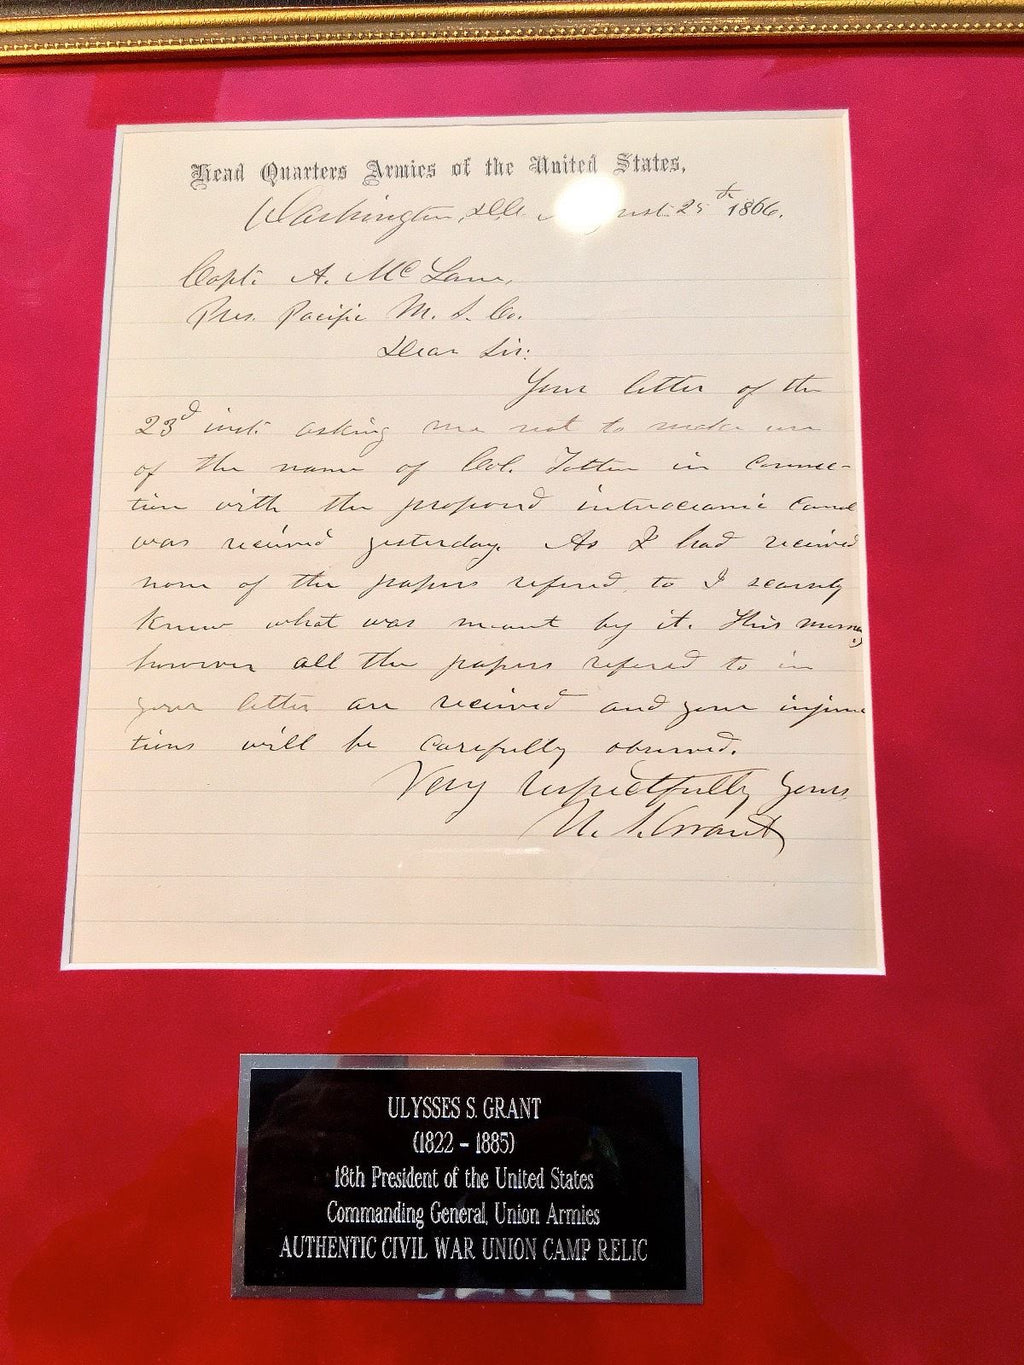 Head Quarters Armies of the United States,
Washington, D.C. August 25th 1866.
Capt. A. McLane,
Pres. Pacific M. S. Co.
Dear Sir:
Your letter of the
23d inst. asking me not to make use
of the name of Col. Totten in connec-
tion with the proposed interoceanic Canal
was received yesterday. As I had received
none of the papers refered to I scarsely
knew what was meant by it. This morning,
however all the papers refered to in
your letter are received and your injunc
tions will be carefully observed.
Very respectfully yours
U. S. Grant
ULYSSES S. GRANT
(1822 - 1885)
18th President of the United States
Commanding General, Union Armies
AUTHENTIC CIVIL WAR UNION CAMP RELIC